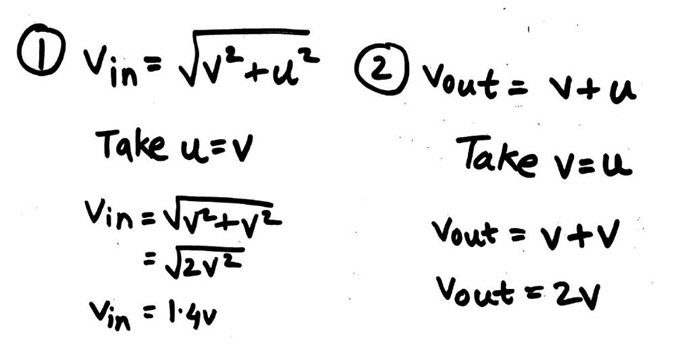 ① Vin = √v²+u²
Take u=v
Vin = √v²+v²
= √2v²
Vin = 1.4v
② Vout = v+u
Take v=u
Vout = v+v
Vout = 2v